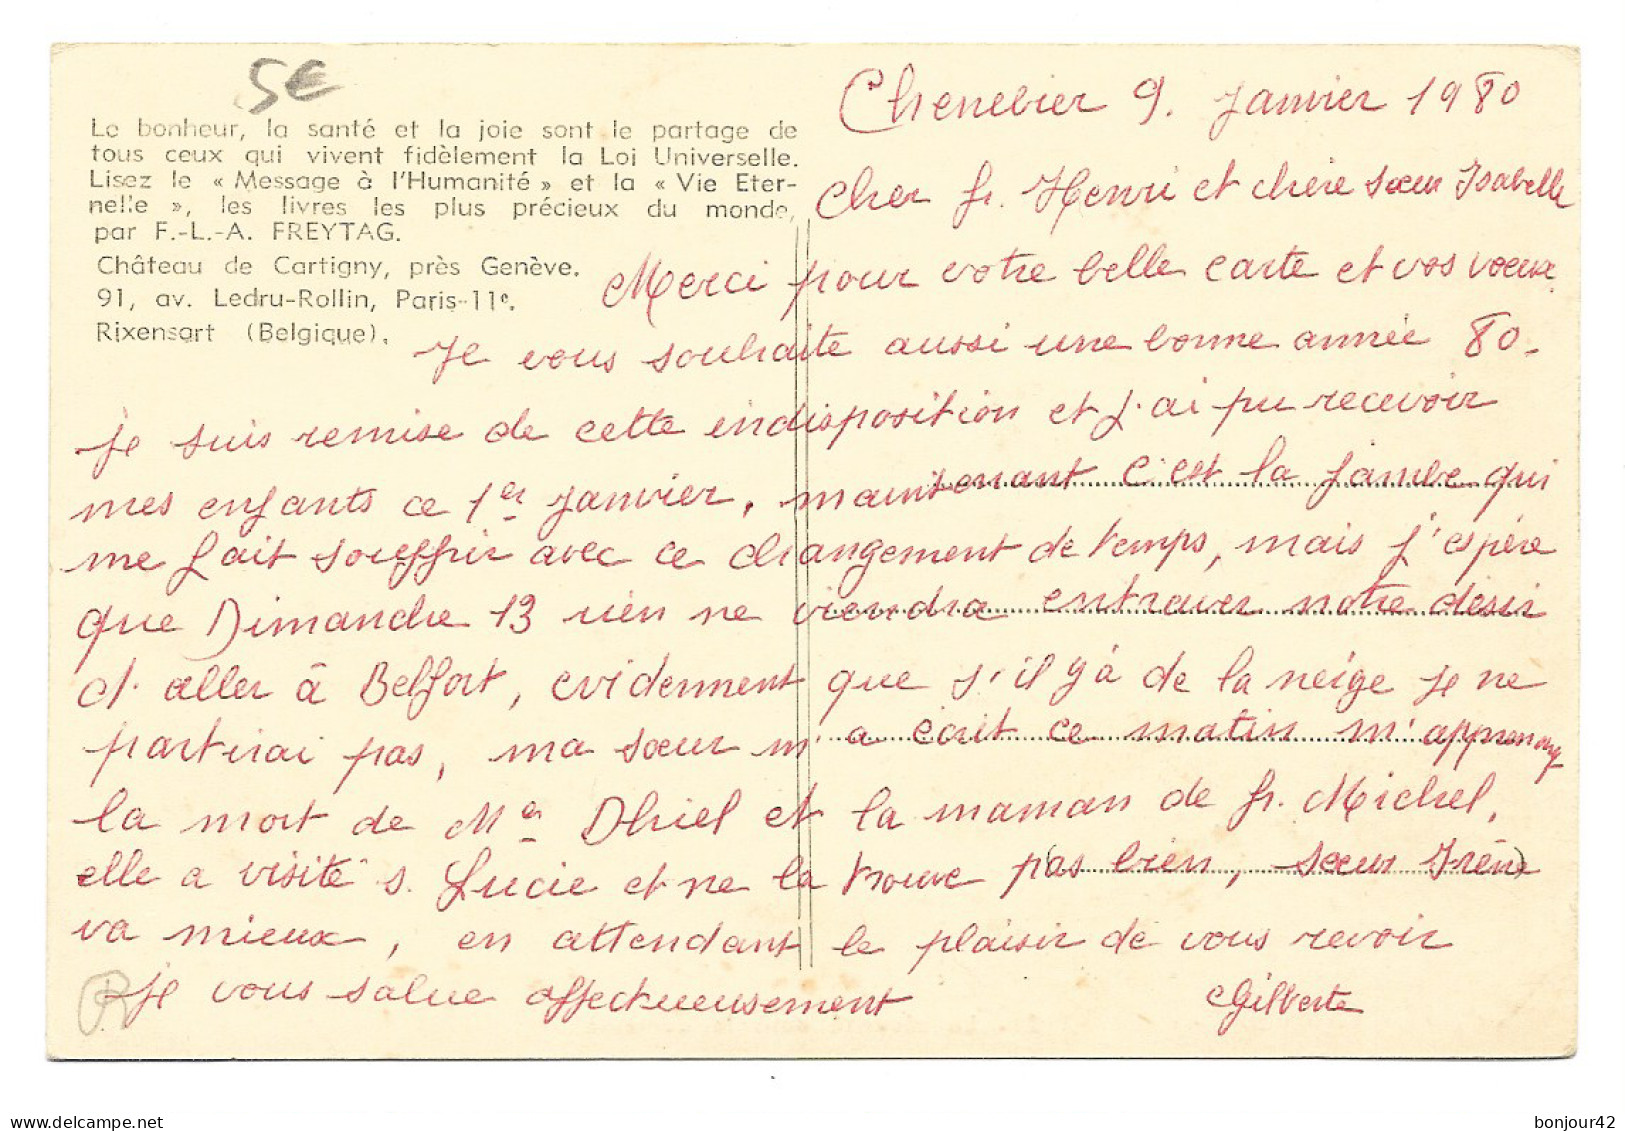 5€
Le bonheur, la santé et la joie sont le partage de
tous ceux qui vivent fidèlement la Loi Universelle.
Lisez le « Message à l'Humanité » et la « Vie Eter-
nelle », les livres les plus précieux du monde,
par F.-L.-A. FREYTAG.
Château de Cartigny, près Genève.
91, av. Ledru-Rollin, Paris-11e.
Rixensart (Belgique).
Chenebier 9. Janvier 1980
Cher fr. Henri et chère sœur Isabelle
Merci pour votre belle carte et vos voeux
Je vous souhaite aussi une bonne année 80.
je suis remise de cette indisposition et j'ai pu recevoir
mes enfants ce 1er Janvier, maintenant c'est la jambe qui
me fait souffrir avec ce changement de temps, mais j'espère
que Dimanche 13 rien ne viendra entraver notre désir
d'aller à Belfort, evidenment que s'il y à de la neige je ne
partirai pas, ma sœur m'a écrit ce matin m'apprenant
la mort de Me Dhiel et la maman de fr. Michel,
elle a visité s. Lucie et ne la trouve pas bien, sœur Irène
va mieux, en attendant le plaisir de vous revoir
je vous salue affectueusement Gilberte
R
www.delcampe.net
bonjour42